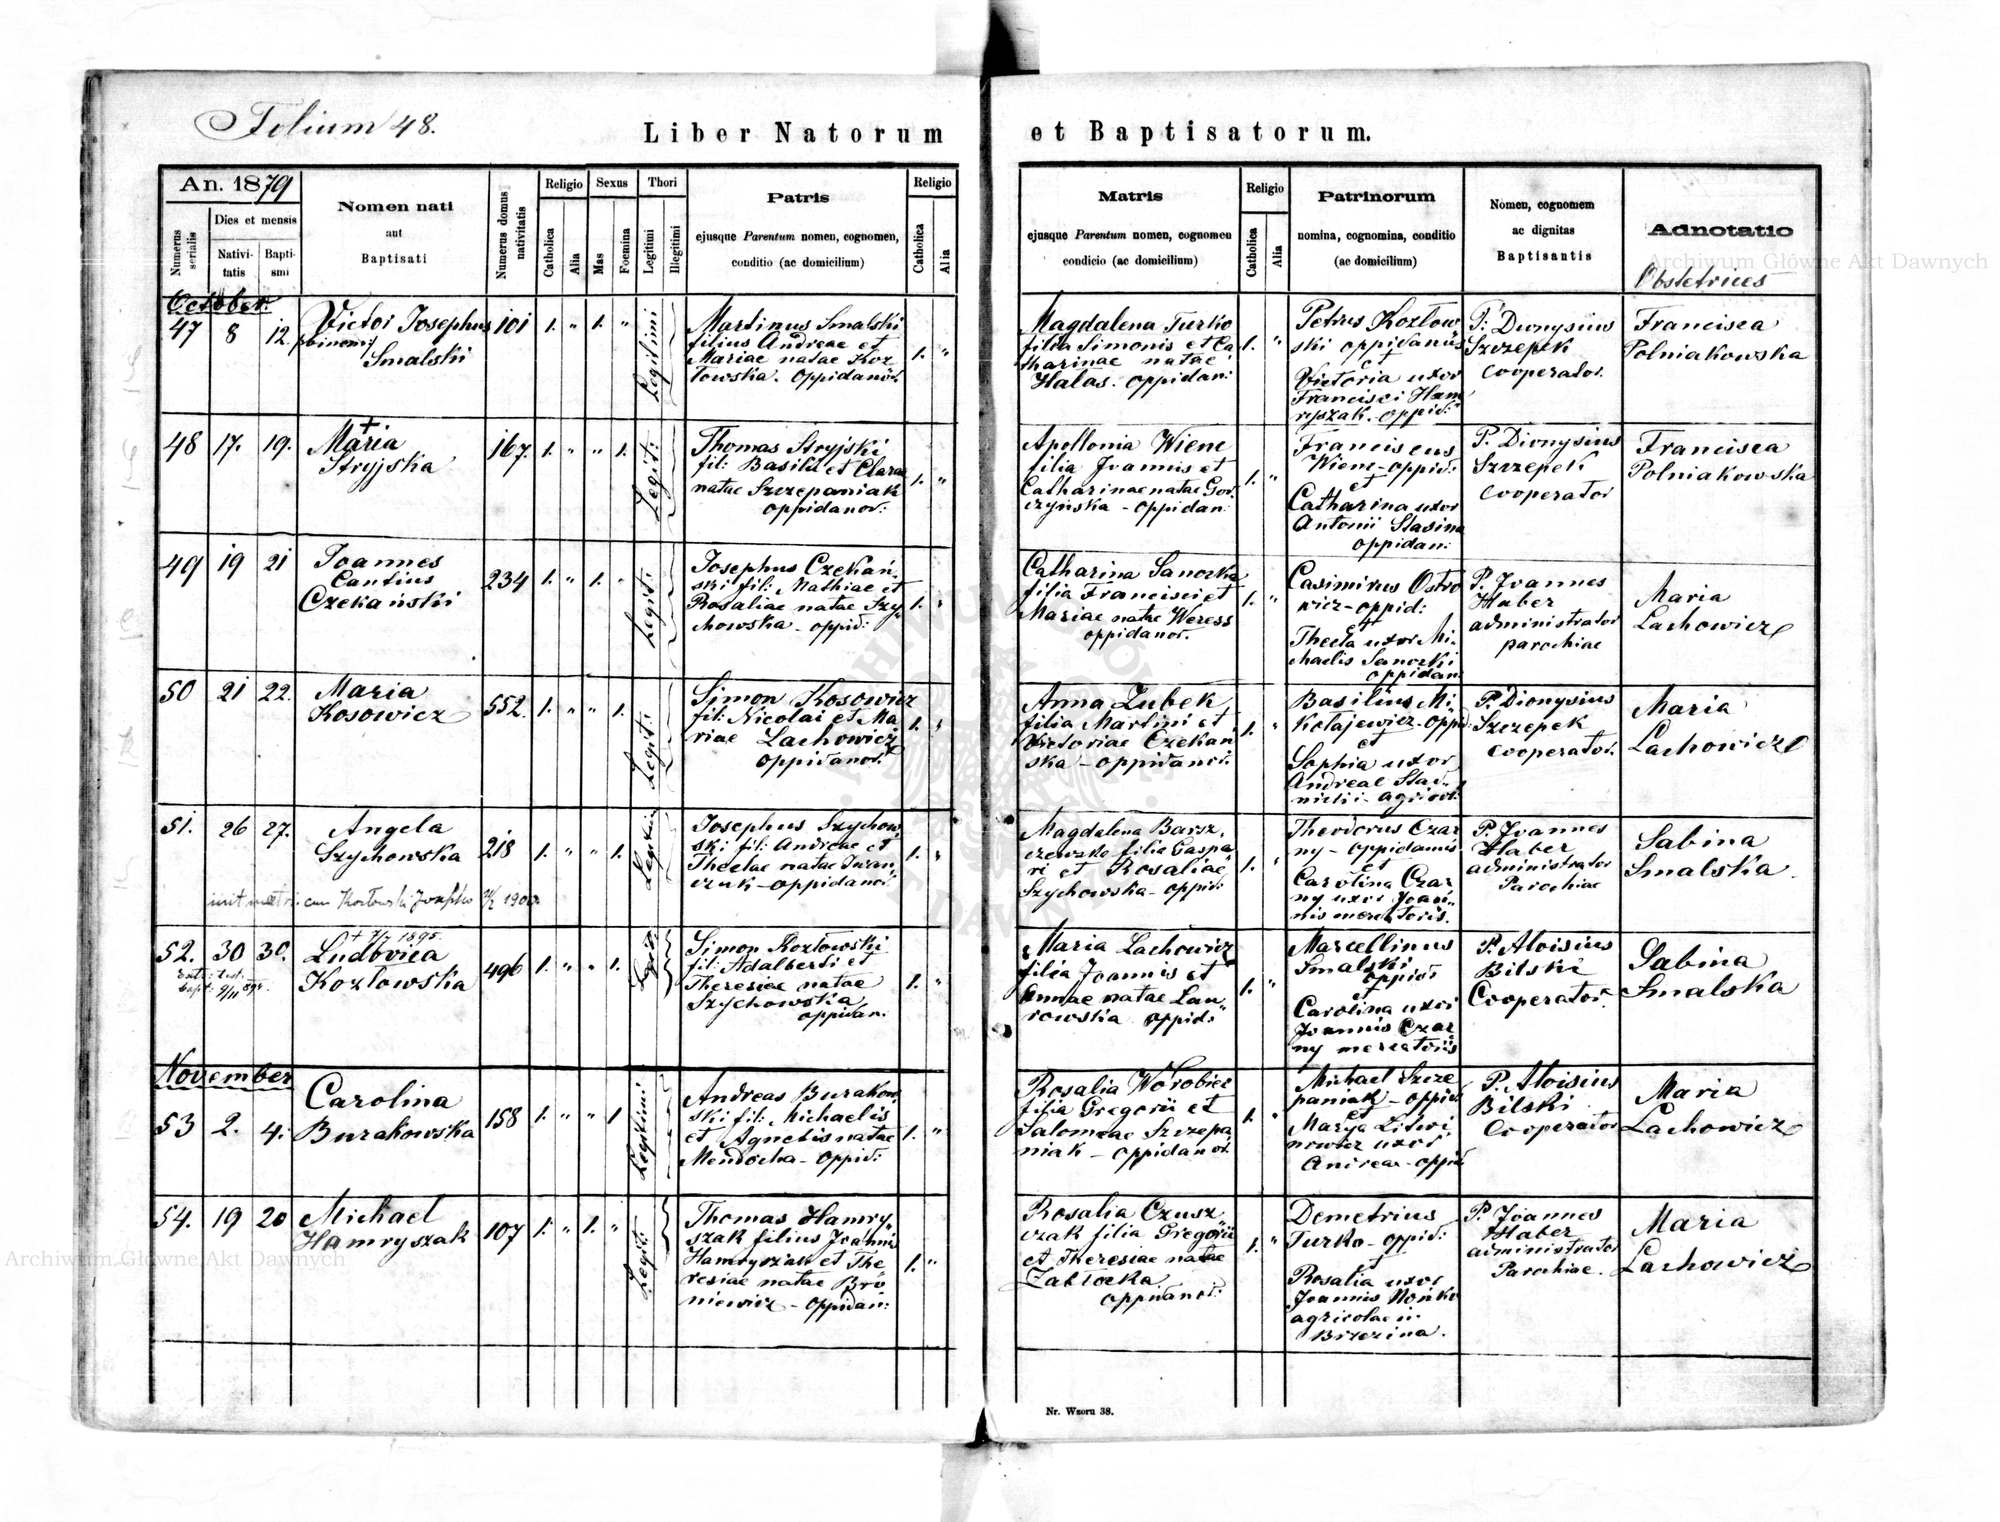 Folium 48.
Liber Natorum et Baptisatorum.
An. 1879
Numerus serialis
Dies et mensis
Nativitatis
Baptismi
Nomen nati
aut
Baptisati
Numerus domus nativitatis
Religio
Catholica
Alia
Sexus
Mas
Foemina
Thori
Legitimi
Illegitimi
Patris
ejusque Parentum nomen, cognomen,
conditio (ac domicilium)
Religio
Catholica
Alia
Matris
ejusque Parentum nomen, cognomen
condicio (ac domicilium)
Religio
Catholica
Alia
Patrinorum
nomina, cognomina, conditio
(ac domicilium)
Nomen, cognomem
ac dignitas
Baptisantis
Adnotatio
Obstetrices
October.
47 8 12.
Victor Josephus
binomi
Smalski
101 1. " 1. "
Legitimi
Martinus Smalski
filius Andreae et
Mariae natae Koz
łowska. oppidanor.
1. "
Magdalena Turko
filia Simonis et Ca
tharinae natae
Hałas. oppidan:
1. "
Petrus Kozłow
ski oppidanus
et
Victoria uxor
Francisci Ham
ryszak. oppid:
P: Dionysius
Szczepek
cooperator.
Francisca
Polniakowska
48 17. 19.
Maria
Stryjska
167. 1. " " 1.
Legit:
Thomas Stryjski
fil: Basilii et Clarae
natae Szczepaniak
oppidanor:
1. "
Apollonia Wiene
filia Joannis et
Catharinae natae Gor
czyńska - oppidan:
1. "
Franciscus
Wiene - oppid:
et
Catharina uxor
Antonii Stasina
oppidan:
P. Dionysius
Szczepek
cooperator
Francisca
Polniakowska
49 19 21
Joannes
Cantius
Czekański
234 1. " 1. "
Legit:
Josephus Czekań-
ski fil: Mathiae et
Rosaliae natae Szy
chowska - oppid:
1. "
Catharina Sanocka
filia Francisci et
Mariae natae Weress
oppidanor.
1. "
Casimirus Ostro
wicz - oppid:
et
Thecla uxor Mi-
chaelis Sanocki
oppidan:
P. Joannes
Haber
administrator
parochiae
Maria
Lachowicz
50 21 22.
Maria
Kosowicz
552. 1. " " 1.
Legit:
Simon Kosowicz
fil: Nicolai et Ma
riae Lachowicz
oppidanor.
1. "
Anna Zubek
filia Martini et
Victoriae Czekań
ska - oppidanor.
1. "
Basilius Mi-
kołajewicz - oppid:
et
Sophia uxor
Andreae Stad-
nicki - agricol:
P. Dionysius
Szczepek
cooperator.
Maria
Lachowicz
51. 26 27.
Angela
Szychowska
218 1. " " 1.
Josephus Szychow
ski fil: Andreae et
Theclae natae Iwań
czuk - oppidanor:
1. "
Magdalena Barsz,
czewska filia Gaspa
ri et Rosaliae
Szychowska - oppid:
1. "
Theodorus Czar
ny - oppidanus
et
Carolina Czar
ny uxor Joan
nis mercatoris.
P. Joannes
Haber
administrator
Parochiae
Sabina
Smalska.
cum Kozłowski Josepho 1900
52. 30 30.
+ 7/7 1895.
Ludovica
Kozłowska
496 1. " " 1.
Simon Kozłowski
fil: Adalberti et
Theresiae natae
Szychowska
oppidan:
1. "
Maria Lachowicz
filia Joannis et
Annae natae Lau
rowska oppid:
1. "
Marcellinus
Smalski
oppid:
et
Carolina uxor
Joannis Czar
ny mercatoris
P. Aloisius
Bilski
Cooperator.
Sabina
Smalska
November
53 2. 4.
Carolina
Burakowska
158 1. " " 1
Legitimi
Andreas Burakow
ski fil: Michaelis
et Agnetis natae
Mendocha - oppid:
1. "
Rosalia Worobiec
filia Gregorii et
Salomeae Szczepa
niak - oppidanor.
1. "
Michael Szcze
paniak - oppid:
et
Marya Litwi
nowicz uxor
Andreae - oppid
P. Aloisius
Bilski
Cooperator
Maria
Lachowicz
54. 19 20
Michael
Hamryszak
107 1. " 1. "
Legit:
Thomas Hamry
szak filius Joannis
Hamryszak et The
resiae natae Bro
niewicz - oppidan:
1. "
Rosalia Czusz
czak filia Gregorii
et Theresiae natae
Zabłocka
oppidanor:
1. "
Demetrius
Turko - oppid:
et
Rosalia uxor
Joannis Nońko
agricolae in
Brzezina.
P. Joannes
Haber
administrator
Parochiae.
Maria
Lachowicz
Nr. Wzoru 38.
Archiwum Główne Akt Dawnych
Archiwum Główne Akt Dawnych